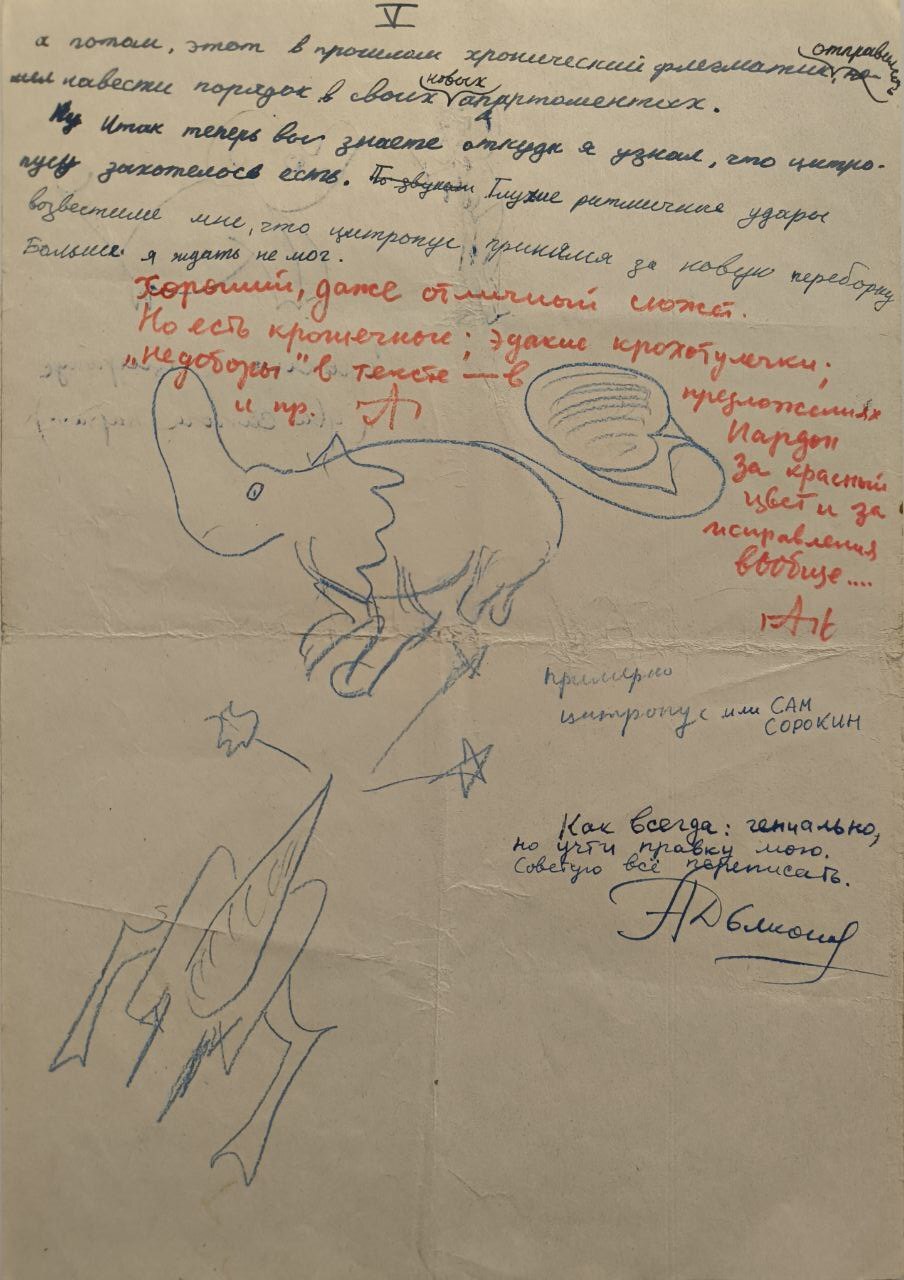 V
а потом, этот в прошлом хронический флегматик, по- отправился
шел навести порядок в своих новых апартоментах.
Ну Итак теперь вы знаете откуда я узнал, что цитро-
пусу захотелось есть. По звукам Глухие ритмичные удары
возвестили мне, что цитропус принялся за новую переборку
Больше я ждать не мог.
Хороший, даже отличный сюжет.
Но есть крошечные; эдакие крохотулечки;
„недоборы" в тексте — в
предложениях
и пр. А
Пардон
За красный
цвет и за
исправления
вообще....
примерно
цитропус или САМ
СОРОКИН
Как всегда: гениально,
но учти правку мою.
Советую всё переписать.